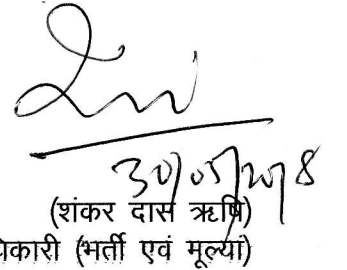 30/05/2018
(शंकर दास ऋषि)
धिकारी (भर्ती एवं मूल्यां)